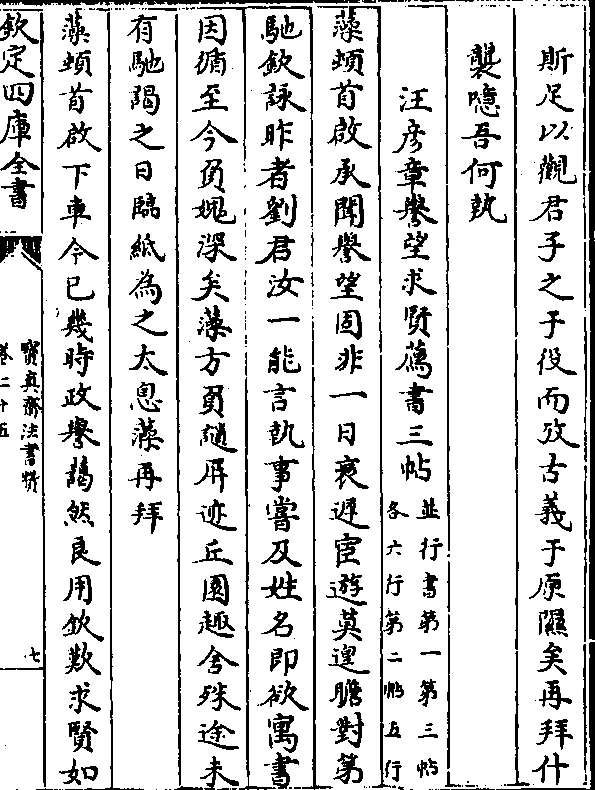 斯足以觀君子之于役而攷古義于原隰矣再拜什
襲噫吾何執
汪彥章譽望求賢薦書三帖
並行書第一第三帖
各六行第二帖五行
藻頓首啟承聞譽望固非一日衰遲宦遊莫遑瞻對第
馳欽詠昨者劉君汝一能言執事嘗及姓名即欲寓書
因循至今負媿深矣藻方負譴屏迹丘園趣舍殊途未
有馳謁之日臨紙為之太息藻再拜
藻頓首啟下車今已幾時政譽藹然良用欽歎求賢如
欽定四庫全書
寶真齋法書贊
卷二十五
七